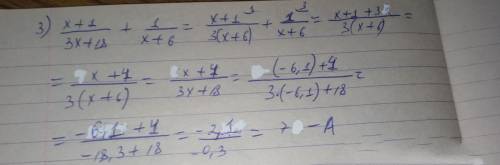 3) (x+1)/(3x+18) + 1/(x+6) = (x+1)/(3(x+6)) + 1³/(x+6) = (x+1+3)/(3(x+6)) =
= (x+4)/(3(x+6)) = (x+4)/(3x+18) = ((-6,1)+4)/(3·(-6,1)+18) =
= (-6,1+4)/(-18,3+18) = (-2,1)/(-0,3) = 7 - A